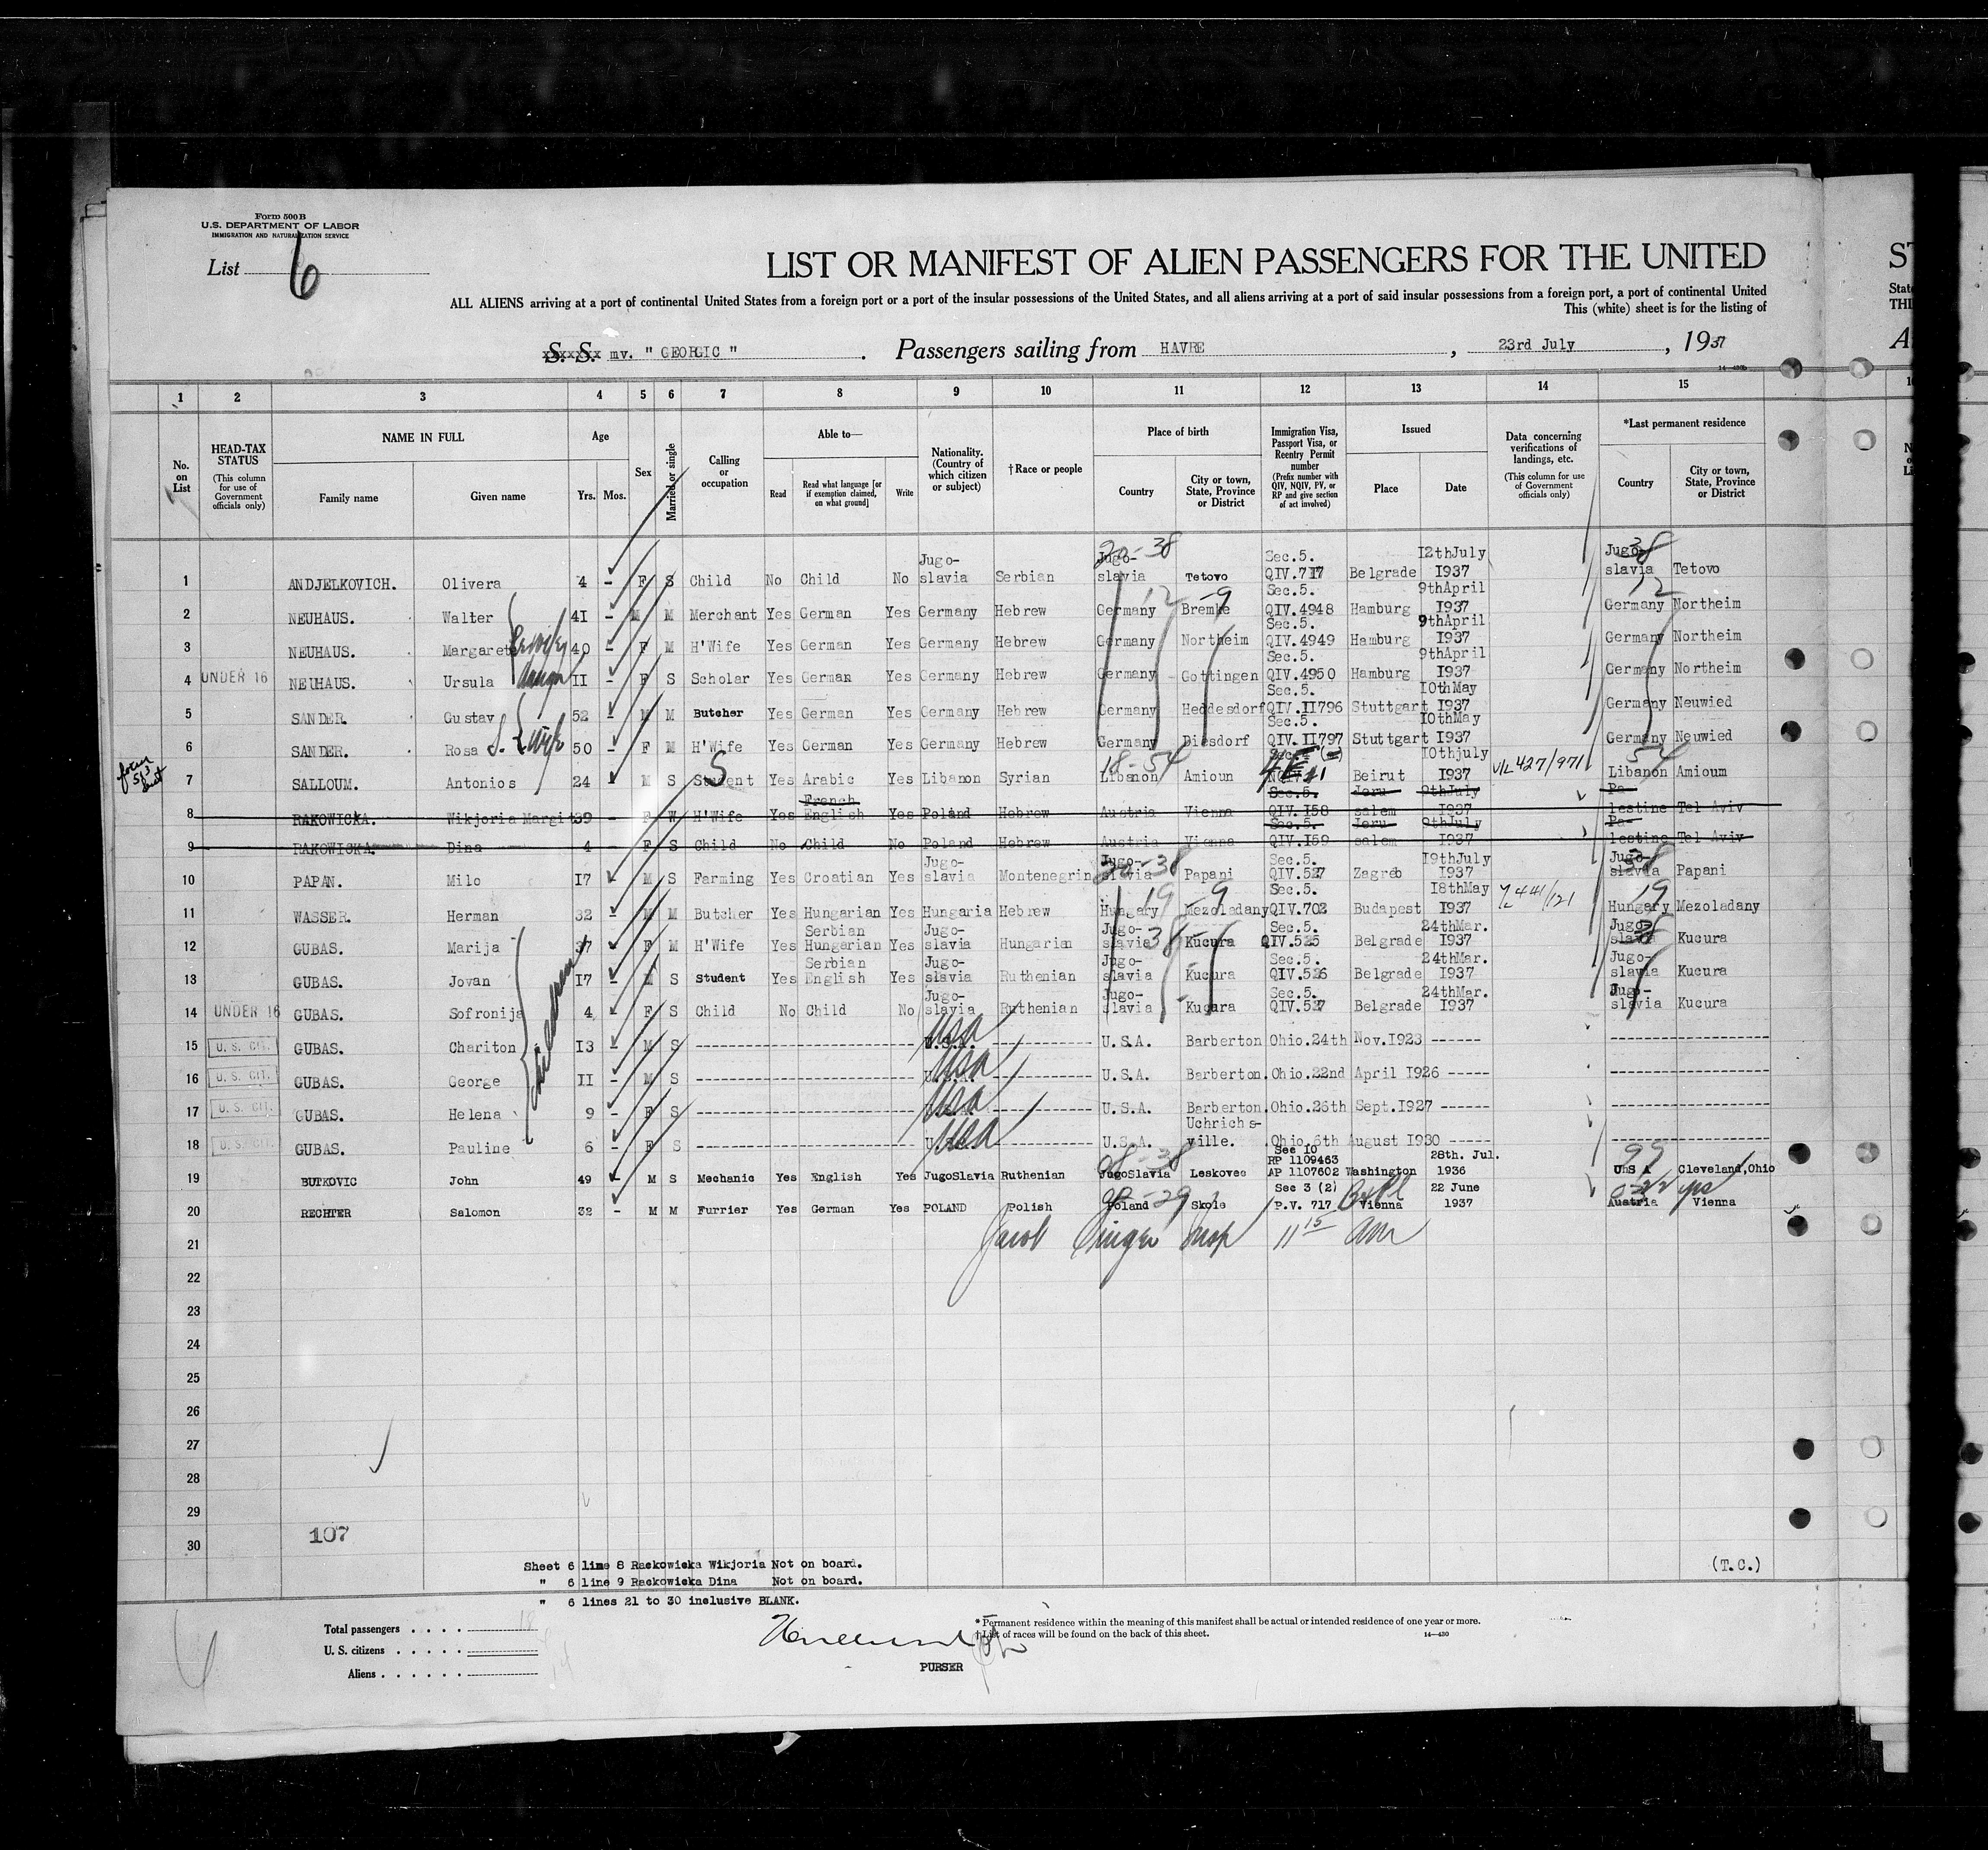 Form 500B
U.S. DEPARTMENT OF LABOR
IMMIGRATION AND NATURALIZATION SERVICE
List 6
LIST OR MANIFEST OF ALIEN PASSENGERS FOR THE UNITED
ALL ALIENS arriving at a port of continental United States from a foreign port or a port of the insular possessions of the United States, and all aliens arriving at a port of said insular possessions from a foreign port, a port of continental United
This (white) sheet is for the listing of
S. S. mv. " GEORGIC " . Passengers sailing from HAVRE , 23rd July , 1937
14—430b
1 2 3 4 5 6 7 8 9 10 11 12 13 14 15
No. on List
HEAD-TAX STATUS
(This column for use of Government officials only)
NAME IN FULL
Family name
Given name
Age
Yrs. Mos.
Sex
Married or single
Calling or occupation
Able to—
Read
Read what language [or if exemption claimed, on what ground]
Write
Nationality. (Country of which citizen or subject)
†Race or people
Place of birth
Country
City or town, State, Province or District
Immigration Visa, Passport Visa, or Reentry Permit number
(Prefix number with QIV, NQIV, PV, or RP and give section of act involved)
Issued
Place
Date
Data concerning verifications of landings, etc.
(This column for use of Government officials only)
*Last permanent residence
Country
City or town, State, Province or District
20-38 38
1 ANDJELKOVICH. Olivera 4 - F S Child No Child No Jugo-slavia Serbian Jugo-slavia Tetovo Sec.5. QIV.717 Belgrade 12thJuly I937 Jugo-slavia Tetovo
2 NEUHAUS. Walter 4I - M M Merchant Yes German Yes Germany Hebrew Germany Bremke Sec.5. QIV.4948 Hamburg 9thApril I937 Germany Northeim
3 NEUHAUS. Margarete 40 - F M H'Wife Yes German Yes Germany Hebrew Germany Northeim Sec.5. QIV.4949 Hamburg 9thApril I937 Germany Northeim
4 UNDER 16 NEUHAUS. Ursula II - F S Scholar Yes German Yes Germany Hebrew Germany Gottingen Sec.5. QIV.4950 Hamburg 9thApril I937 Germany Northeim
5 SANDER. Gustav 52 - M M Butcher Yes German Yes Germany Hebrew Germany Heddesdorf Sec.5. QIV.II796 Stuttgart I0thMay I937 Germany Neuwied
6 SANDER. Rosa S. wife 50 - F M H'Wife Yes German Yes Germany Hebrew Germany Diesdorf Sec.5. QIV.II797 Stuttgart I0thMay I937 Germany Neuwied
18-54 54
7 SALLOUM. Antonios 24 M S Student Yes Arabic Yes Libanon Syrian Libanon Amioun Beirut I0thjuly I937 V/L 427/971 Libanon Amioum
8 RAKOWICKA. Wikjoria Margit 39 - F W H'Wife Yes French English Yes Poland Hebrew Austria Vienna Sec.5. QIV.I58 Jeru-salem 9thJuly I937 Pa-lestine Tel Aviv
9 RAKOWICKA. Dina 4 - F S Child No Child No Poland Hebrew Austria Vienna Sec.5. QIV.I59 Jeru-salem 9thJuly I937 Pa-lestine Tel Aviv
10 PAPAN. Milo I7 M S Farming Yes Croatian Yes Jugo-slavia Montenegrin Jugo-slavia Papani Sec.5. QIV.527 Zagreb I9thJuly I937 Jugo-slavia Papani
11 WASSER. Herman 32 - M M Butcher Yes Hungarian Yes Hungaria Hebrew Hungary Mezoladany Sec.5. QIV.702 Budapest I8thMay I937 441/121 Hungary Mezoladany
12 GUBAS. Marija 37 F M H'Wife Yes Serbian Hungarian Yes Jugo-slavia Hungarian Jugo-slavia Kucura Sec.5. QIV.525 Belgrade 24thMar. I937 Jugo-slavia Kucura
13 GUBAS. Jovan I7 - M S Student Yes Serbian English Yes Jugo-slavia Ruthenian Jugo-slavia Kucura Sec.5. QIV.526 Belgrade 24thMar. I937 Jugo-slavia Kucura
14 UNDER 16 GUBAS. Sofronija 4 F S Child No Child No Jugo-slavia Ruthenian Jugo-slavia Kucura Sec.5. QIV.527 Belgrade 24thMar. I937 Jugo-slavia Kucura
15 U. S. CIT. GUBAS. Chariton I3 - M S U.S.A. usa U.S.A. Barberton Ohio.24th Nov.I923
16 U. S. CIT. GUBAS. George II - M S U.S.A. usa U.S.A. Barberton.Ohio.22nd April I926
17 U. S. CIT. GUBAS. Helena 9 - F S usa U.S.A. Barberton.Ohio.26th Sept.I927
18 U. S. CIT. GUBAS. Pauline 6 - F S U.S.A. usa U.S.A. Uchrichs-ville. Ohio.6th August I930
19 BUTKOVIC John 49 M S Mechanic Yes English Yes JugoSlavia Ruthenian JugoSlavia Leskovec Sec 10 RP 1109463 AP 1107602 Washington 28th. Jul. 1936 UhS A Cleveland,Ohio
20 RECHTER Salomon 32 - M M Furrier Yes German Yes POLAND Polish Poland Skole Sec 3 (2) P.V. 717 Vienna 22 June 1937 Austria Vienna
21 11 15 am
22
23
24
25
26
27
28
29
30
107
Sheet 6 line 8 Rackowicka Wikjoria Not on board.
" 6 line 9 Rackowicka Dina Not on board.
" 6 lines 21 to 30 inclusive BLANK.
(T.C.)
Total passengers 18
U. S. citizens
Aliens 14
* Permanent residence within the meaning of this manifest shall be actual or intended residence of one year or more.
† List of races will be found on the back of this sheet.
14—430
PURSER